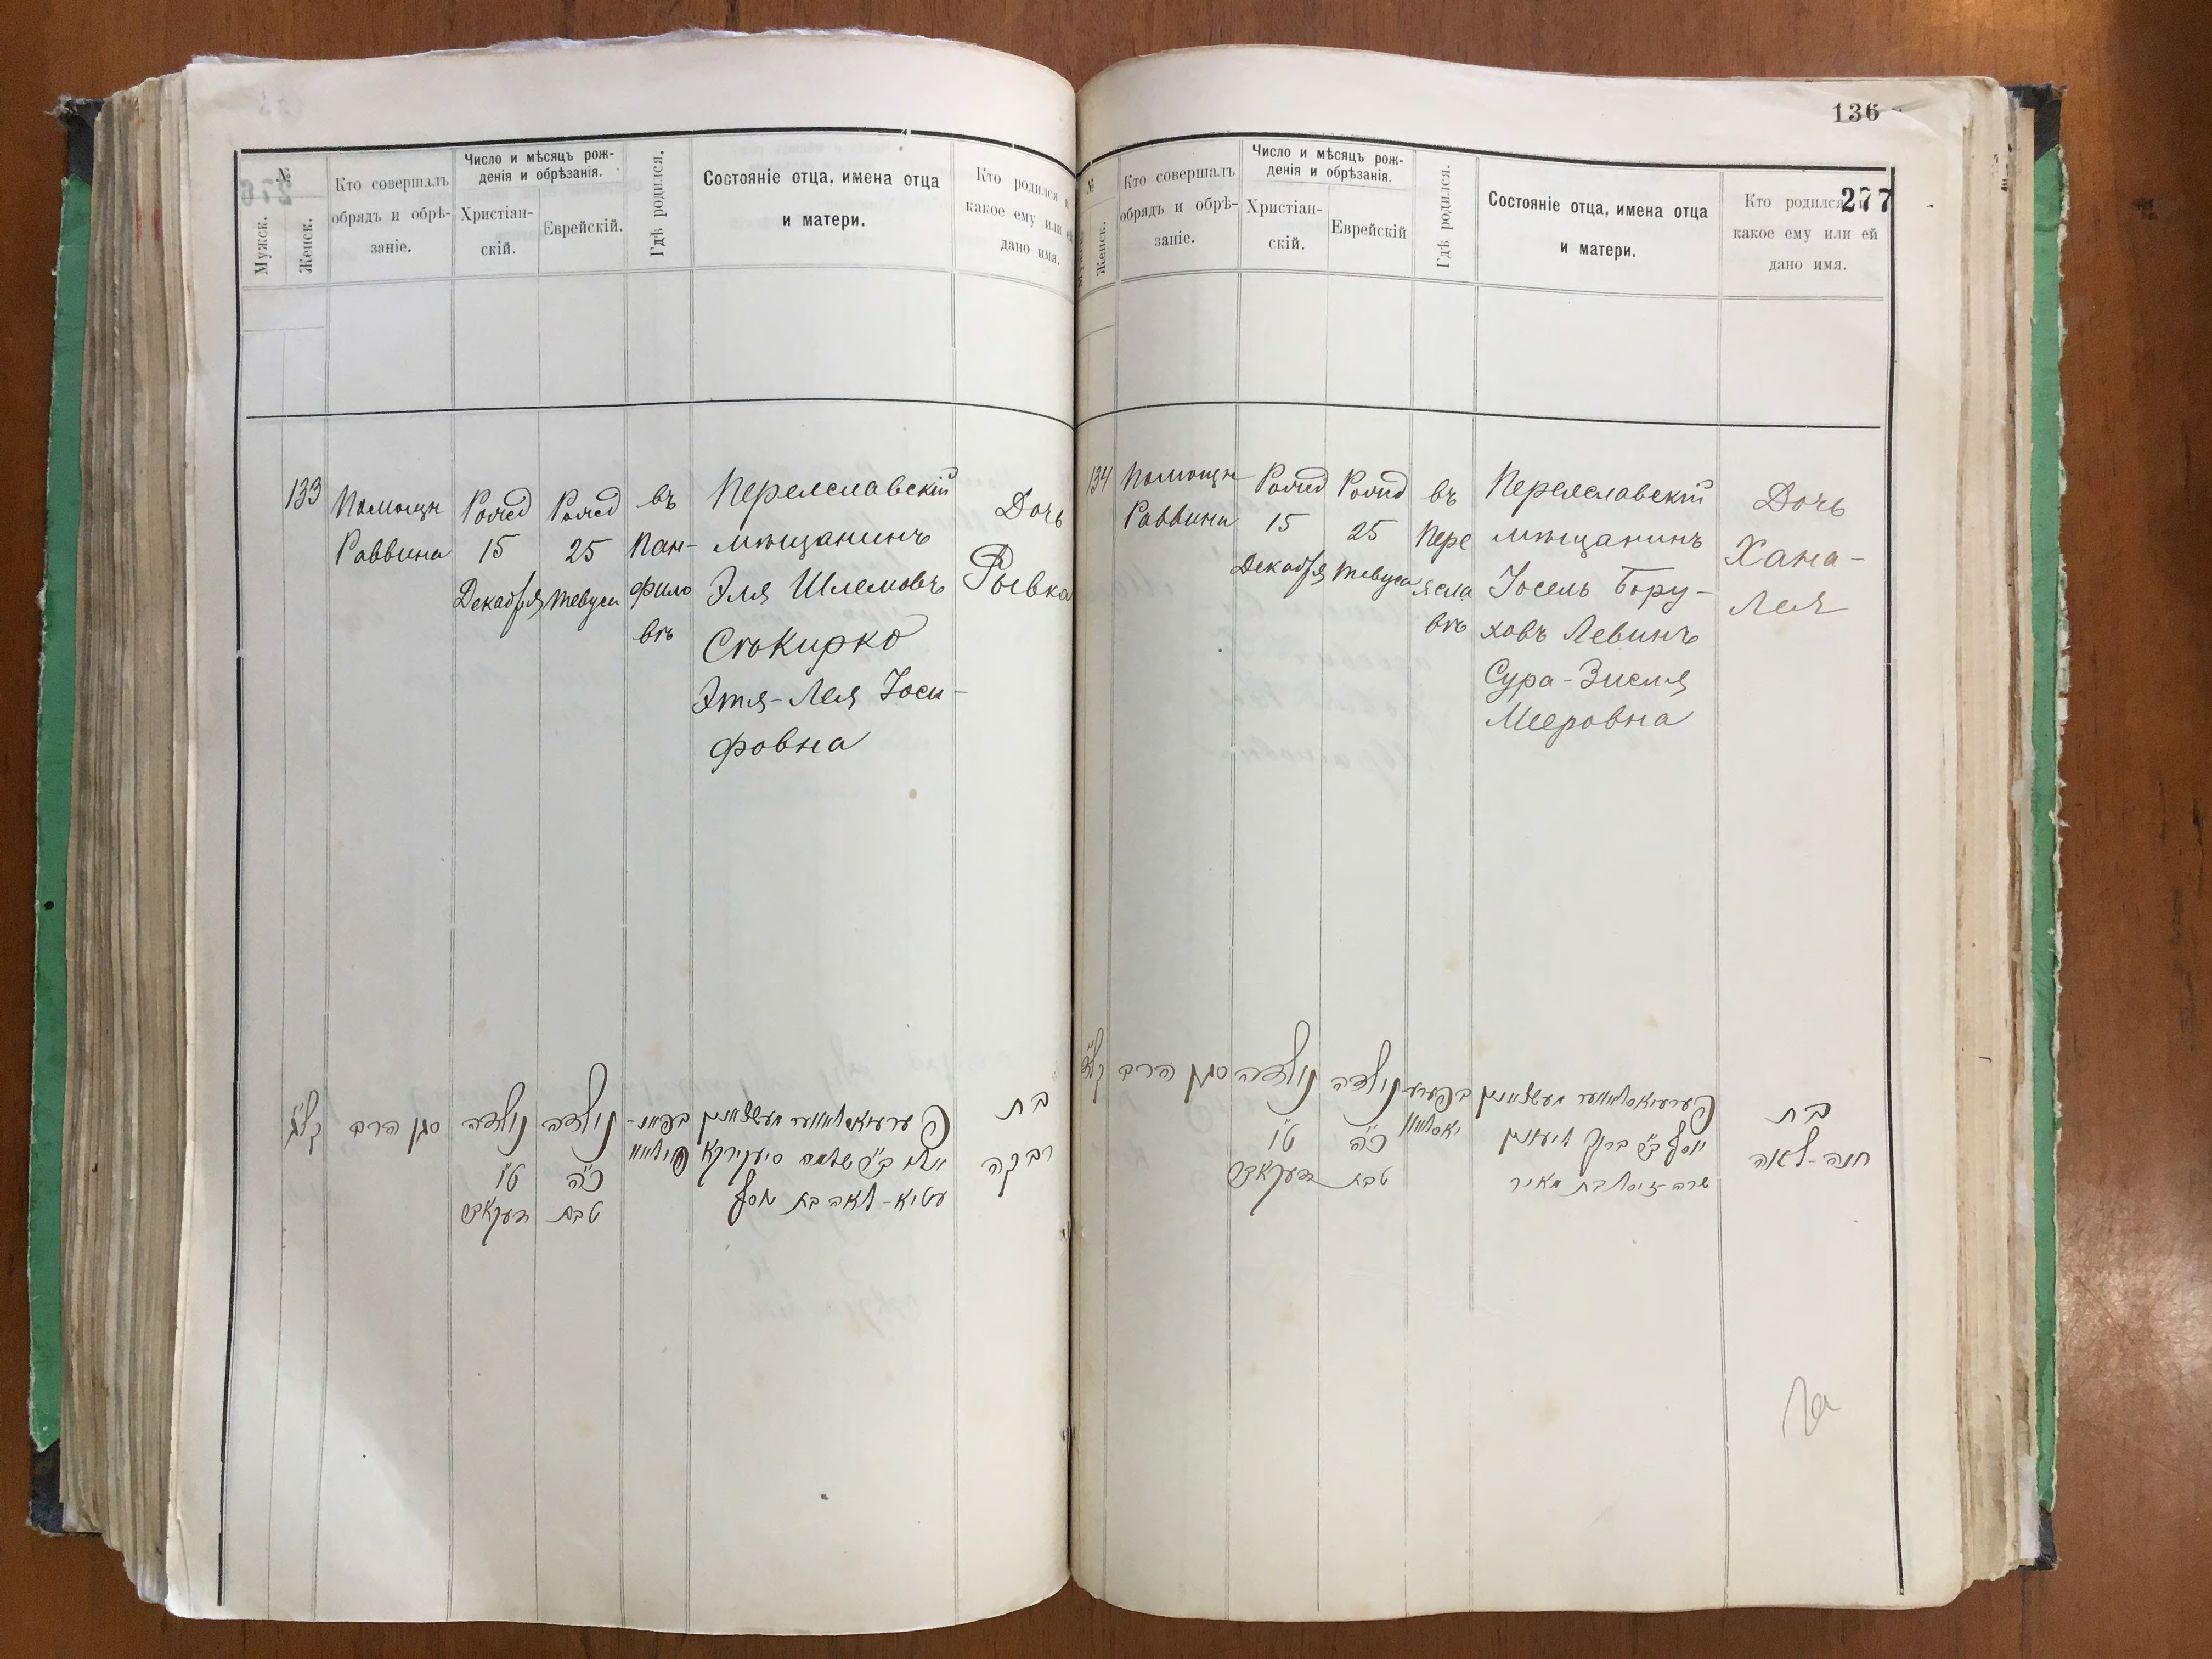 №
Мужск.
Женск.
Кто совершалъ
обрядъ и обрѣ-
заніе.
Число и мѣсяцъ рож-
денія и обрѣзанія.
Христіан-
скій.
Еврейскій.
Гдѣ родился.
Состояніе отца, имена отца
и матери.
Кто родился и
какое ему или ей
дано имя.
133
Помощн
Раввина
Рожд
15
Декабря
Рожд
25
тевуса
въ
Пан-
фило
вѣ
Переяславскій
мѣщанинъ
Эля Шлемовъ
Стокирко
Этя-Лея Іоси-
фовна
Дочь
Рывка
קל״ג
סגן הרב
נולדה
ט״ו
דעקאבר
נולדה
כ״ה
טבת
בת
רבקה
136
277
№
Мужск.
Женск.
Кто совершалъ
обрядъ и обрѣ-
заніе.
Число и мѣсяцъ рож-
денія и обрѣзанія.
Христіан-
скій.
Еврейскій
Гдѣ родился.
Состояніе отца, имена отца
и матери.
Кто родился и
какое ему или ей
дано имя.
134
Помощн
Раввина
Рожд
15
Декабря
Рожд
25
тевуса
въ
Пере
ясла
вѣ
Переяславскій
мѣщанинъ
Іосель Бору-
ховъ Левинъ
Сура-Зисля
Мееровна
Дочь
Хана-
Лея
קל״ד
סגן הרב
נולדה
ט״ו
דעקאבר
נולדה
כ״ה
טבת
יוסף ב״ר ברוך לעווין
שרה-זיסל בת מאיר
בת
חנה-לאה